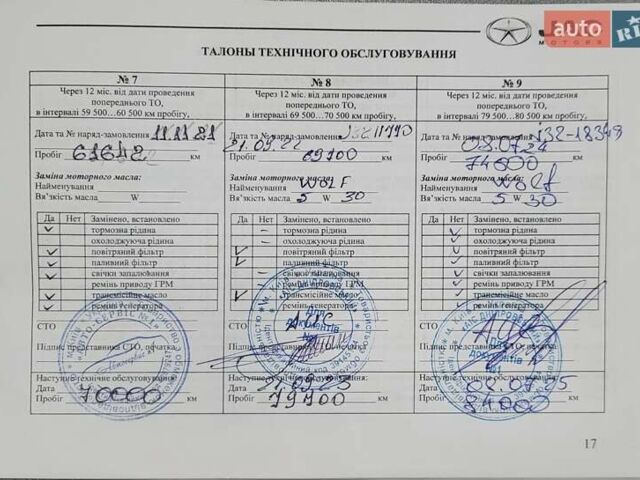 JAC
MOTORS
auto RIA
ТАЛОНЫ ТЕХНІЧНОГО ОБСЛУГОВУВАННЯ
№ 7
Через 12 міс. від дати проведення
попереднього ТО,
в інтервалі 59 500…60 500 км пробігу,
Дата та № наряд-замовлення 11.11.21
Пробіг 61642 км
Заміна моторного масла:
Найменування
В'язкість масла W
Да Нет Замінено, встановлено
тормозна рідина
охолоджуюча рідина
повітряний фільтр
паливний фільтр
свічки запалювання
ремінь приводу ГРМ
трансмісійне масло
ремінь генератора
СТО
Підпис представника СТО, печатка
Наступне технічне обслуговування:
Дата
Пробіг 70000 км
№ 8
Через 12 міс. від дати проведення
попереднього ТО,
в інтервалі 69 500…70 500 км пробігу,
Дата та № наряд-замовлення
21.09.22
Пробіг 69100 км
Заміна моторного масла:
Найменування WOLF
В'язкість масла 5 W 30
Да Нет Замінено, встановлено
тормозна рідина
охолоджуюча рідина
повітряний фільтр
паливний фільтр
свічки запалювання
ремінь приводу ГРМ
трансмісійне масло
ремінь генератора
СТО
Для документів
Підпис представника СТО, печатка
Наступне технічне обслуговування:
Дата
Пробіг 79100 км
№ 9
Через 12 міс. від дати проведення
попереднього ТО,
в інтервалі 79 500…80 500 км пробігу,
Дата та № наряд-замовлення
03.07.24
Пробіг 74000 км
Заміна моторного масла:
Найменування Wolf
В'язкість масла 5 W 30
Да Нет Замінено, встановлено
тормозна рідина
охолоджуюча рідина
повітряний фільтр
паливний фільтр
свічки запалювання
ремінь приводу ГРМ
трансмісійне масло
ремінь генератора
СТО
Для документів №1
Підпис представника СТО, печатка
Наступне технічне обслуговування:
Дата
Пробіг 84000 км
17